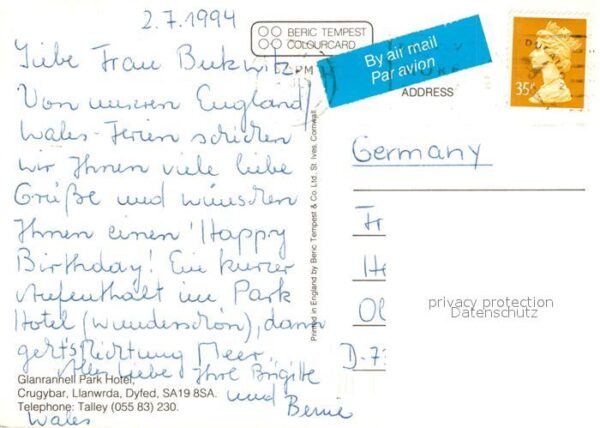 2.7.1994
BERIC TEMPEST
COLOURCARD
By air mail
Par avion
35P
ADDRESS
Liebe Frau Bukwitz
Von unseren England/
Wales-Ferien schicken
wir Ihnen viele liebe
Grüße und wünschen
Ihnen einen 'Happy
Birthday! Ein kurzer
Aufenthalt im Park
Hotel (wunderschön), dann
geht's Richtung Meer.
Alles liebe Ihre Brigitte
und Bernie
Glanrannell Park Hotel,
Crugybar, Llanwrda, Dyfed, SA19 8SA.
Telephone: Talley (055 83) 230.
Wales
Printed in England by Beric Tempest & Co. Ltd., St. Ives, Cornwall
Germany
Fr
He
Ol
D-7
privacy protection
Datenschutz